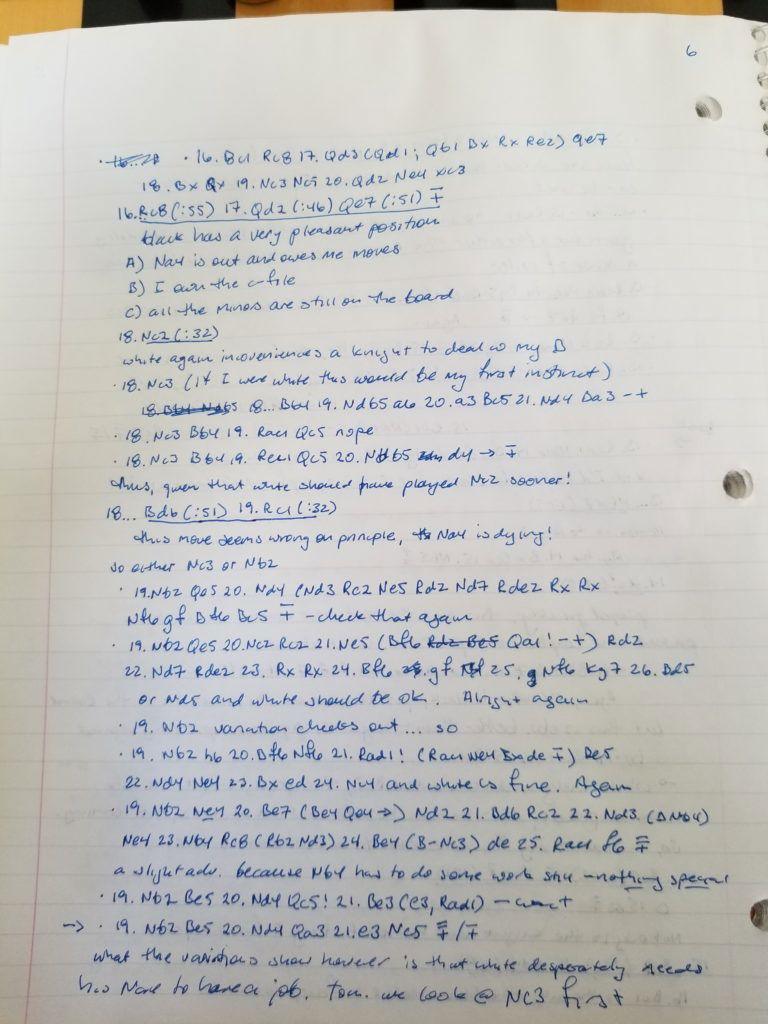 6
· 16. Bc1 Rc8 17. Qd3 (Qd1; Qb1 Bx Rx Re2) Qe7
18. Bx Qx 19. Nc3 Nc5 20. Qd2 Ne4 xc3
16. Rc8 (:55) 17. Qd2 (:46) Qe7 (:51) ∓
black has a very pleasant position
A) Na4 is out and owes me moves
B) I own the c-file
C) all the minors are still on the board
18. Nc2 (:32)
white again inconveniences a knight to deal w my B
· 18. Nc3 (If I were white this would be my first instinct)
18... Bb4 19. Ndb5 a6 20. a3 Bc5 21. Nd4 Ba3 -+
· 18. Nc3 Bb4 19. Rac1 Qc5 nope
· 18. Nc3 Bb4 19. Rec1 Qc5 20. Ndb5 d4 → ∓
Thus, given that white should have played Nc2 sooner!
18... Bd6 (:51) 19. Rc1 (:32)
this move seems wrong on principle, Na4 is dying!
so either Nc3 or Nb2
· 19. Nb2 Qe5 20. Nd4 (Nd3 Rc2 Ne5 Rd2 Nd7 Rde2 Rx Rx
Nf6 gf Bf6 Bc5 ∓ - check that again
· 19. Nb2 Qe5 20. Nc2 Rc2 21. Ne5 (Bf6 Qa1! -+) Rd2
22. Nd7 Rde2 23. Rx Rx 24. Bf6 gf 25. Nf6 Kg7 26. Bd5
or Nd5 and white should be ok. Alright again
· 19. Nb2 variation checks out... so
· 19. Nb2 h6 20. Bf6 Nf6 21. Rad1! (Rac1 Ne4 Bx de ∓) Be5
22. Nd4 Ne4 23. Bx ed 24. Nc4 and white is fine. Again
· 19. Nb2 Ne4 20. Be7 (Be4 Qe4 →) Nd2 21. Bd6 Rc2 22. Nd3 (Δ Nb4)
Ne4 23. Nb4 Rc8 (Rb2 Nd3) 24. Be4 (B-Nc3) de 25. Rac1 f6 ⩱
a slight adv. because Nb4 has to do some work still - nothing special
· 19. Nb2 Be5 20. Nd4 Qc5! 21. Be3 (e3, Rad1) -
→ · 19. Nb2 Be5 20. Nd4 Qa3 21. e3 Nc5 ⩱/∓
what the variations show however is that white desperately needs
his Na4 to have a job. Tom. we look @ Nc3 first